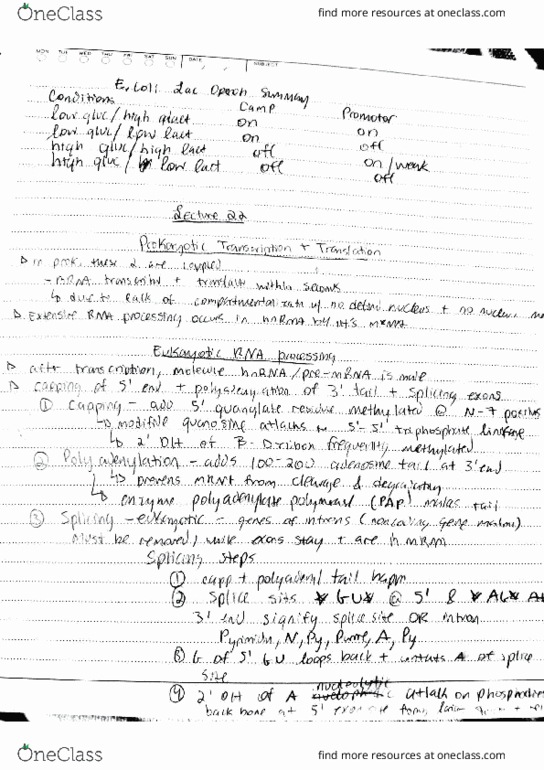 OneClass
find more resources at oneclass.com
MON TUE WED THU FRI SAT SUN DATE SUBJECT
E. Coli Lac Operon Summary
Conditions Camp Promotor
low gluc/high glact on on
low gluc/low lact on off
high gluc/high lact off on/weak
high gluc/ low lact off off
Lecture 22
Prokaryotic Transcription + Translation
in prok, these 2 are coupled
- mRNA transcribd + translatd within seconds
due to lack of compartmentalization w/ no defind nucleus + no nuclear
Extensive RNA processing occurs in hnRNA b4 it's mRNA
Eukaryotic RNA processing
aftr transcription, molecule hnRNA/pre-mRNA is made
capping of 5' end + polyadenylation of 3' tail + splicing exons
① Capping - add 5' guanylate residue methylated @ N-7 position
modified guanosine attacks 5'-5' triphosphate linkage
2' OH of B-D-ribose frequently methylated
② Polyadenylation - adds 100-200 adenosine tail at 3' end
prevens mRNA from cleavage & degradation
enzyme polyadenylate polymerase (PAP) makes tail
③ Splicing - eukaryotic - genes of introns (noncoding gene)
must be removed, while exons stay + are in mRNA
Splicing steps
① capp + polyadenyl tail happn
② Splice sits GU @ 5' & AG
3' end signify splice site OR intron
Pyrimidin, N, Py, Purine, A, Py
③ G of 5' GU loops back + A of splice
site
④ 2' OH of A nucleolytic attack on
back bone at 5' exon
OneClass
find more resources at oneclass.com